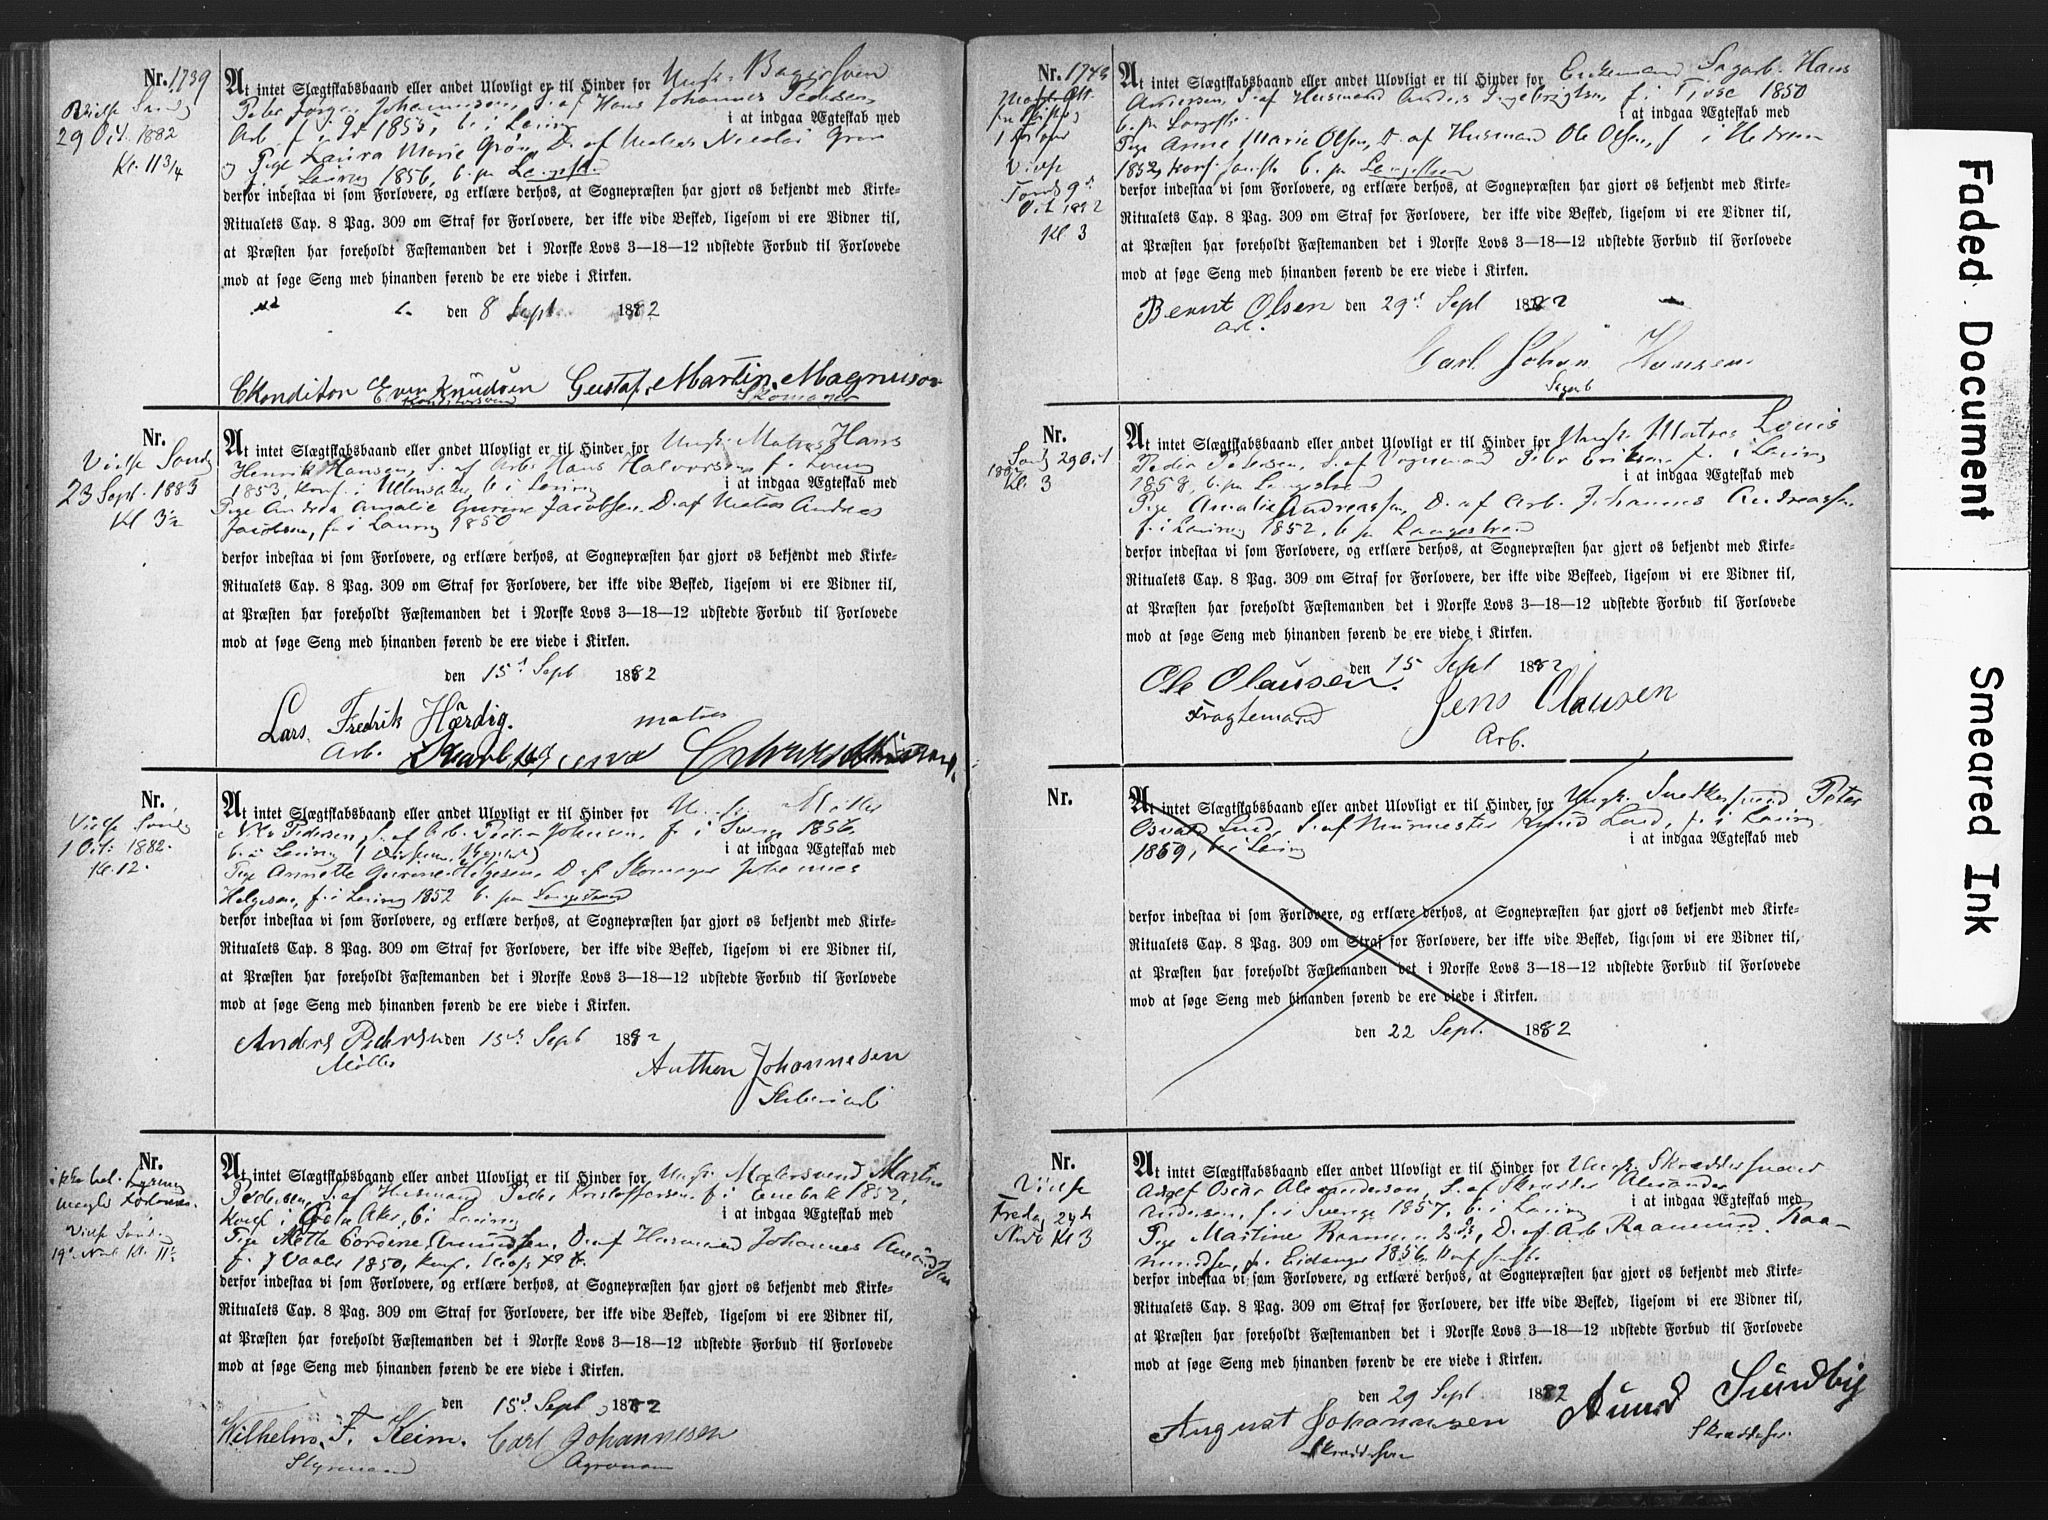 Nr. 1739
Vielse Sondg
29 Oct. 1882
Kl. 11 3/4
At intet Slægtskabsbaand eller andet Ulovligt er til Hinder for Ungk. Bagersvend
Peter Johannesen, S. af Hans Johannes Pedersen
Arb f. 1855, b. i Laurvig i at indgaa Ægteskab med
Pige Laura Marie Grøn, D. af Matros Nicolai Grøn
f. i Laurvig 1856, b. paa Langestr.
derfor indestaa vi som Forlovere, og erklære derhos, at Sognepræsten har gjort os bekjendt med Kirke-
Ritualets Cap. 8 Pag. 309 om Straf for Forlovere, der ikke vide Besked, ligesom vi ere Vidner til,
at Præsten har foreholdt Fæstemanden det i Norske Lovs 3—18—12 udstedte Forbud til Forlovede
mod at søge Seng med hinanden førend de ere viede i Kirken.
den 8 Sept 1882
Konditor Even Knudsen Gustaf. Martin. Magnuson
Skomager
Nr.
Vielse Sondg
23 Sept. 1883
Kl 3½
At intet Slægtskabsbaand eller andet Ulovligt er til Hinder for Ungk. Matros Hans
Henrik Hansen, S. af Arb. Hans Halvorsen, f.
1853, konf. i Ullensaker, b. i Laurvig i at indgaa Ægteskab med
Pige Andrea Amalie Gurine Jacobsen. D. af Matros Andreas
Jacobsen, f. i Laurvig 1850
derfor indestaa vi som Forlovere, og erklære derhos, at Sognepræsten har gjort os bekjendt med Kirke-
Ritualets Cap. 8 Pag. 309 om Straf for Forlovere, der ikke vide Besked, ligesom vi ere Vidner til,
at Præsten har foreholdt Fæstemanden det i Norske Lovs 3—18—12 udstedte Forbud til Forlovede
mod at søge Seng med hinanden førend de ere viede i Kirken.
den 15d Sept 1882
Lars Fredrik Hærdig. matros
Arb.
Nr.
Vielse Sondg
1 Oct. 1882.
Kl. 12.
At intet Slægtskabsbaand eller andet Ulovligt er til Hinder for Ungk. Møller
Pedersen, S. af Arb. Peder Johansen, f. i Sverge 1856,
b. i Laurvig i at indgaa Ægteskab med
Pige Annette Gurine Helgesen D. af Skomager Johannes
Helgesen, f. i Laurvig 1852 b. paa Langestrand
derfor indestaa vi som Forlovere, og erklære derhos, at Sognepræsten har gjort os bekjendt med Kirke-
Ritualets Cap. 8 Pag. 309 om Straf for Forlovere, der ikke vide Besked, ligesom vi ere Vidner til,
at Præsten har foreholdt Fæstemanden det i Norske Lovs 3—18—12 udstedte Forbud til Forlovede
mod at søge Seng med hinanden førend de ere viede i Kirken.
Anders Pedersen den 15d Sept 1882
Møller
Anthon Johannesen
Nr.
ikke bet. Lysning
mangler Forlovere.
Vielse Sondg
19d Nov Kl. 11½
At intet Slægtskabsbaand eller andet Ulovligt er til Hinder for Ungk. Malersvend Martin
Pedersen, S. af Husmand Peder Kristoffersen f. i Eneba k 1852,
Konf i Aker, b. i Laurvig i at indgaa Ægteskab med
Pige Mette Gordine Amundsen, D. af Husmand Johannes Amundsen
f. i Vaaler 1850, konf.
derfor indestaa vi som Forlovere, og erklære derhos, at Sognepræsten har gjort os bekjendt med Kirke-
Ritualets Cap. 8 Pag. 309 om Straf for Forlovere, der ikke vide Besked, ligesom vi ere Vidner til,
at Præsten har foreholdt Fæstemanden det i Norske Lovs 3—18—12 udstedte Forbud til Forlovede
mod at søge Seng med hinanden førend de ere viede i Kirken.
den 15d Sept 1882
Wilhelm. F. Keim. Carl Johannesen
Styrmand Agronom
Nr. 1743
1 Forlover
Vielse
Torsd 9d
Kl. 3
At intet Slægtskabsbaand eller andet Ulovligt er til Hinder for Enkemand Sagarb. Hans
Andersen, S. af Husmand Anders Ingebrigtsen, f. i 1850
b. paa Langestr. i at indgaa Ægteskab med
Pige Anne Marie Olsen, D. af Husmand Ole Olsen, f. i Hedrum
1852, konf. b. paa Langestrand
derfor indestaa vi som Forlovere, og erklære derhos, at Sognepræsten har gjort os bekjendt med Kirke-
Ritualets Cap. 8 Pag. 309 om Straf for Forlovere, der ikke vide Besked, ligesom vi ere Vidner til,
at Præsten har foreholdt Fæstemanden det i Norske Lovs 3—18—12 udstedte Forbud til Forlovede
mod at søge Seng med hinanden førend de ere viede i Kirken.
Bernt Olsen den 29d Sept 1882
Arb.
Carl Johan Hansen
Sagarb
Nr.
Sondg 29 Oct
1882
Kl. 3
At intet Slægtskabsbaand eller andet Ulovligt er til Hinder for Ungk. Matros Louis
Peder Petersen, S. af Vognmand Peter Eriksen f. i Laurvig
1858, b. paa Langestrand i at indgaa Ægteskab med
Pige Amalie Andreassen, D. af Arb. Johannes Andreassen
f. i Laurvig 1852, b. paa Langestrand
derfor indestaa vi som Forlovere, og erklære derhos, at Sognepræsten har gjort os bekjendt med Kirke-
Ritualets Cap. 8 Pag. 309 om Straf for Forlovere, der ikke vide Besteed, ligesom vi ere Vidner til,
at Præsten har foreholdt Fæstemanden det i Norske Lovs 3—18—12 udstedte Forbud til Forlovede
mod at søge Seng med hinanden førend de ere viede i Kirken.
den 15 Sept 1882
Ole Olausen. Jens Clausen
Fragtemand Arb.
Nr.
At intet Slægtskabsbaand eller andet Ulovligt er til Hinder for Ungk. Snedkersvend Peter
Osvald Lund, S. af Murmester Knud Lund, f. i Laurvig
1859, b. i Laurvig i at indgaa Ægteskab med
derfor indestaa vi som Forlovere, og erklære derhos, at Sognepræsten har gjort os bekjendt med Kirke-
Ritualets Cap. 8 Pag. 309 om Straf for Forlovere, der ikke vide Besked, ligesom vi ere Vidner til,
at Præsten har foreholdt Fæstemanden det i Norske Lovs 3—18—12 udstedte Forbud til Forlovede
mod at søge Seng med hinanden førend de ere viede i Kirken.
den 22 Sept. 1882
Nr.
Vielse
Fredag 29de
Kl 3
At intet Slægtskabsbaand eller andet Ulovligt er til Hinder for Ungk. Skræddersvend
Adolf Oscar Alexanderson, S. af Skrædder Alexander
Andersen, f. i Sverige 1857, b. i Laurvig i at indgaa Ægteskab med
Pige Martine D. af Arb Raamund Raa-
mundsen, f. i Eidanger 1856
derfor indestaa vi som Forlovere, og erklære derhos, at Sognepræsten har gjort os bekjendt med Kirke-
Ritualets Cap. 8 Pag. 309 om Straf for Forlovere, der ikke vide Besked, ligesom vi ere Vidner til,
at Præsten har foreholdt Fæstemanden det i Norske Lovs 3—18—12 udstedte Forbud til Forlovede
mod at søge Seng med hinanden førend de ere viede i Kirken.
den 29 Sept 1882
August Johannesen Amund Sundby
Skræddersven Skrædder.
Faded Document
Smeared Ink